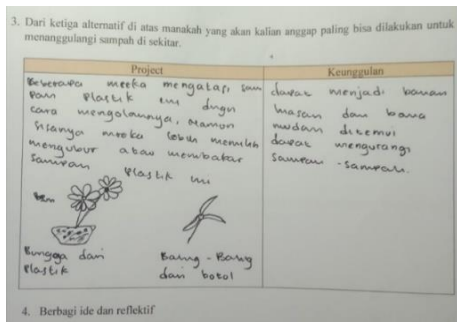 3. Dari ketiga alternatif di atas manakah yang akan kalian anggap paling bisa dilakukan untuk
menanggulangi sampah di sekitar.
Project
Keunggulan
Beberapa mereka mengatasi sam
pan plastik ini dngn
cara mengolannya, namun
sisanya mereka lebih memilih
mengubur atau membakar
sampan plastik ini
Bungga dari
Plastik
Baing-Baing
dari botol
dapat menjadi banan
hiasan dan bana
mudan ditemui
dapat mengurangi
sampan-sampan.
4. Berbagi ide dan reflektif